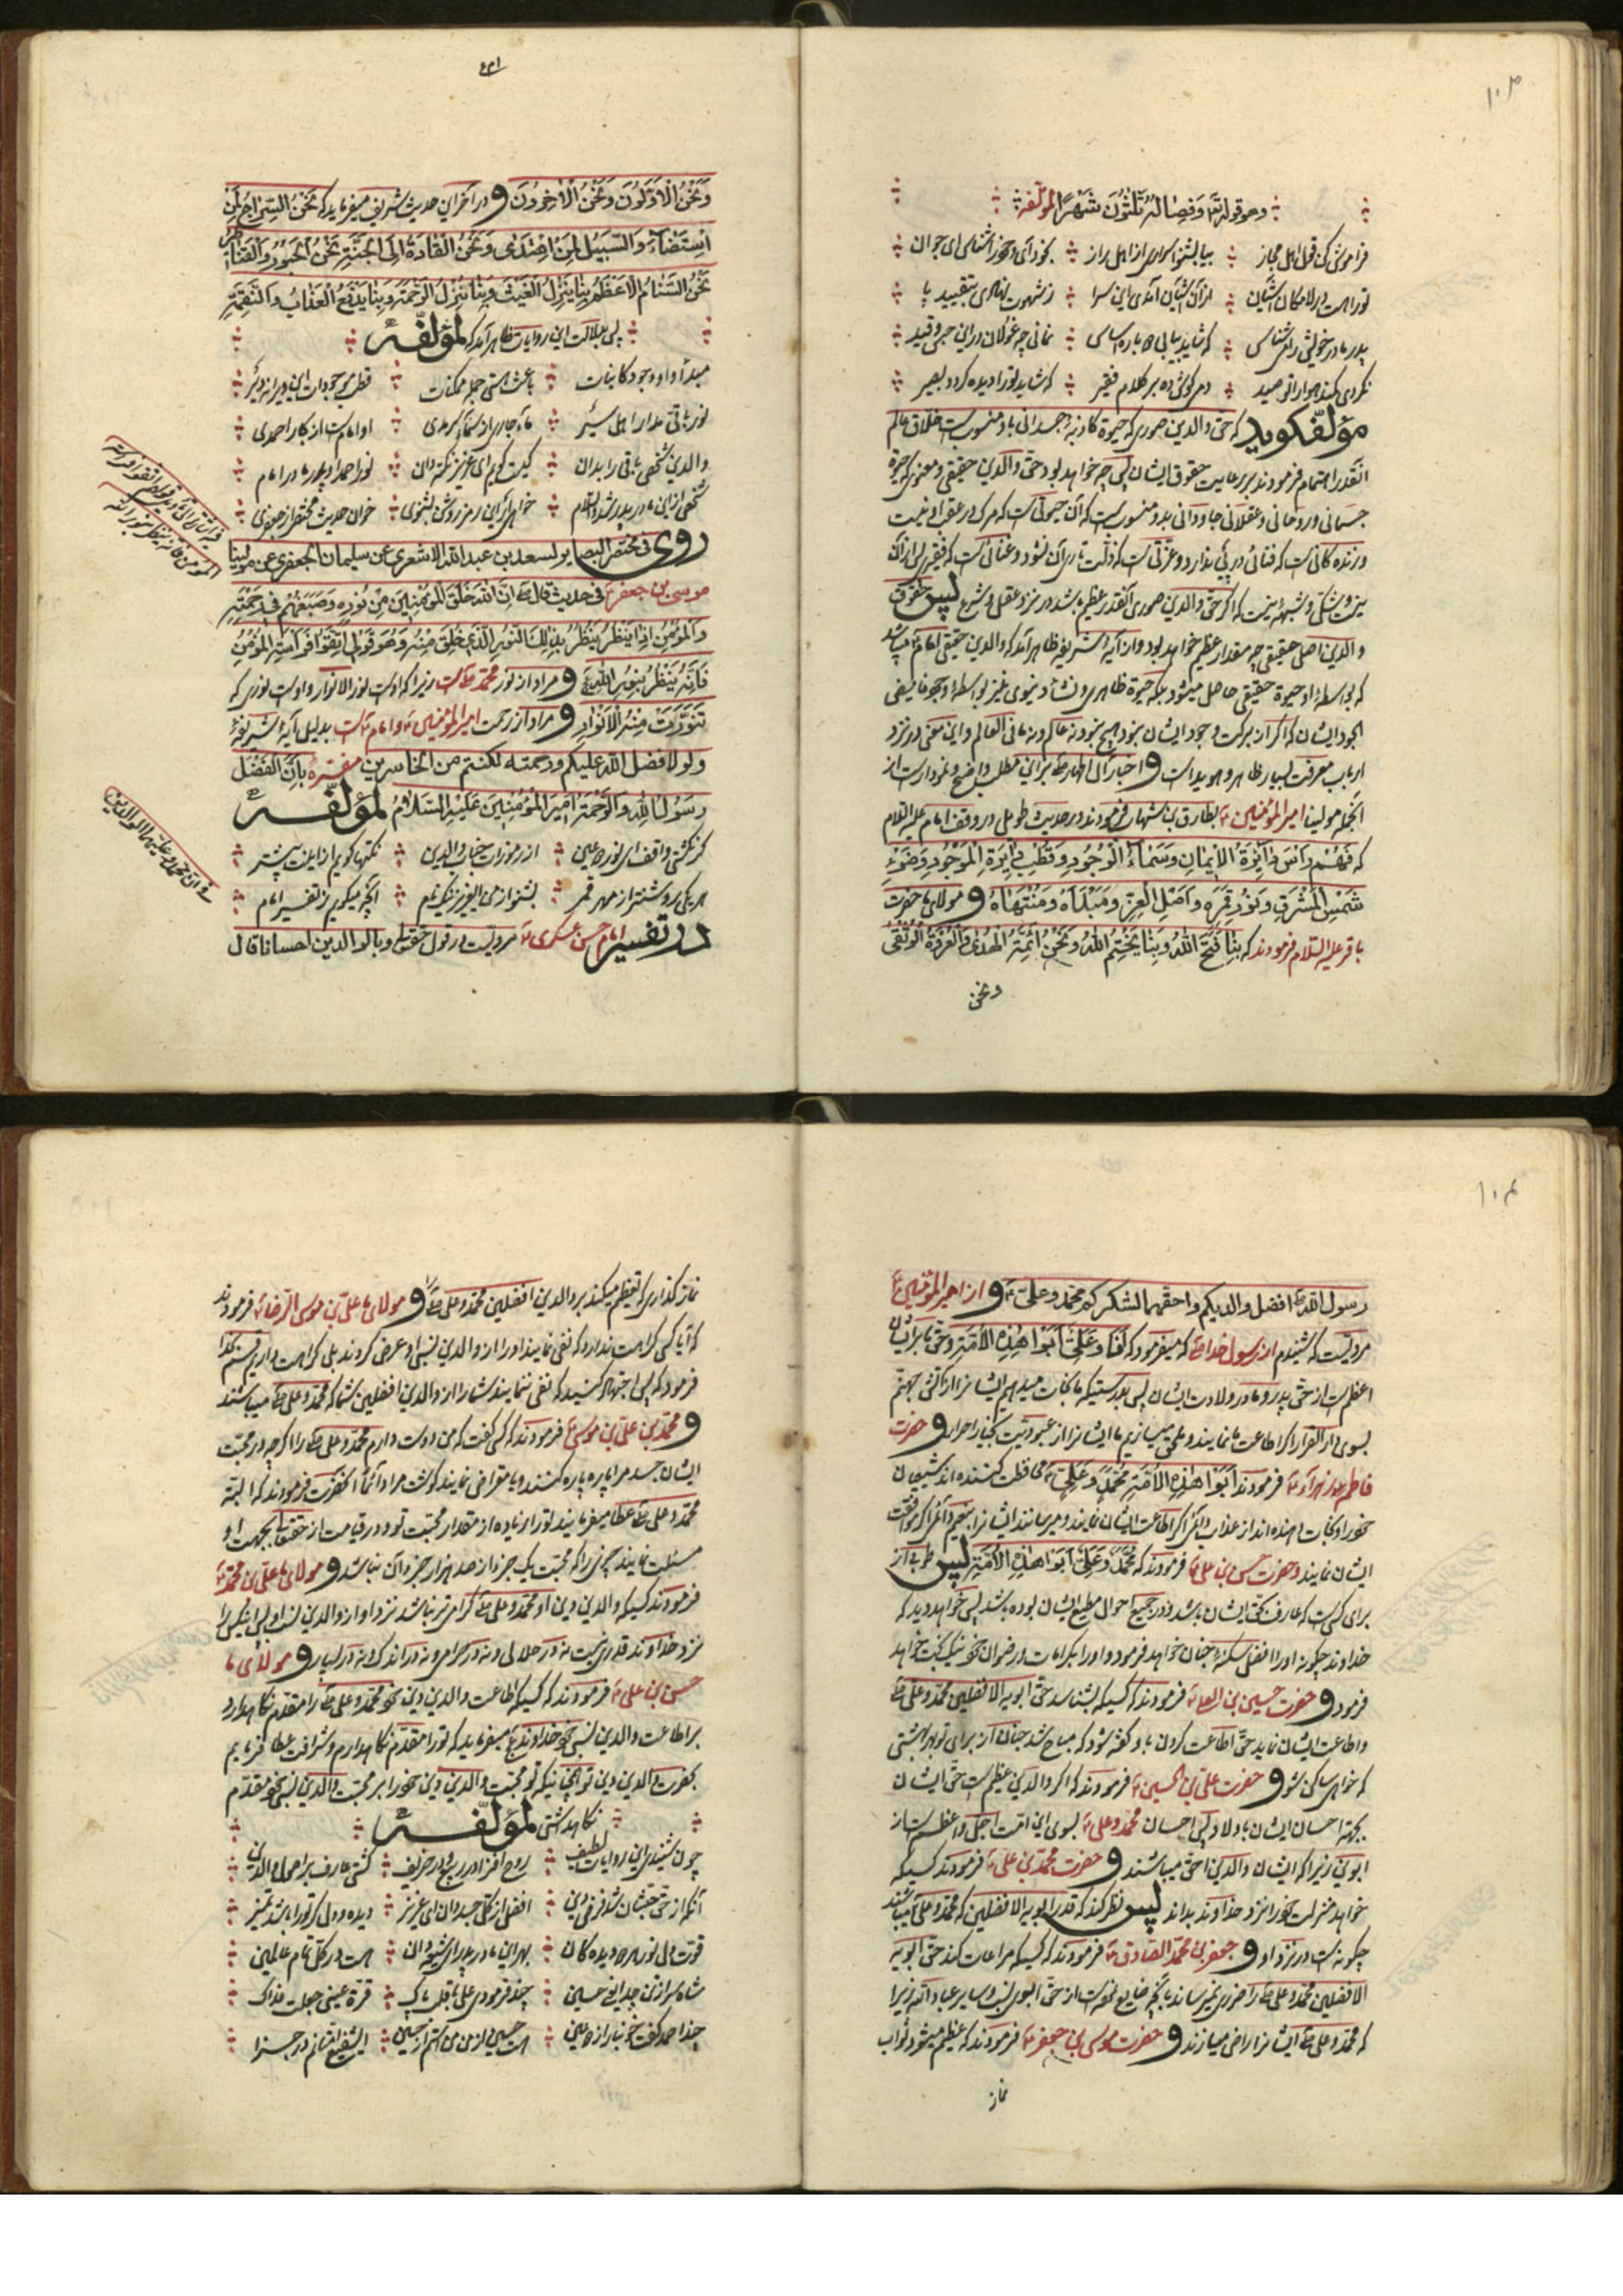 ١٠٣
وهو قوله تعالی وفصاله ثلثون شهرًا لمؤلفه
فراموش کن قول اهل مجاز بیا بشنو اسرار از اهل راز بخود آی و خود را شناس ای جوان
ترا هست در لامکان آشیان از آن آشیان آمدی این سرا ز شهوت نهادی بتقیید پا
پدر مادر خویش را می شناس که شاید بیابی ده باره اساس نمانی چه غولان در این حبس و قید
نکردی کمند هوا را تو صید دمی گوش ده بر کلام فقیر که شاید ترا دیده گردد بصیر
مؤلف گوید که حق والدین صوری که حیوة کاذبه جسدانی باو منسوبست خلاق عالم
آنقدر اهتمام فرمودند بر رعایت حقوق ایشان پس چه خواهد بود حق والدین حقیقی و معنوی که حیوة
جسمانی و روحانی و عقلانی جاودانی بدو منسوبست که آن حیوتی است که مرگ در عقب او نیست
و زنده کانی است که فنائی در پی ندارد و عزتی است که ذلت تاری آن نشود و غنائی است که فقیری از آن
نیست و شکی و شبهه نیست که اگر حق والدین صوری آنقدر عظیم باشد در نزد عقل و شرع پس حقوق
والدین اصلی حقیقی چه مقدار عظیم خواهد بود و از آیه شریفه ظاهر آمد که والدین حقیقی امام میباشد
که بواسطه او حیوة حقیقی حاصل میشود بلکه حیوة ظاهری و نشأ دنیوی نیز بواسطه وجود فایض
الجود ایشان که اگر از برکت وجود ایشان نبود هیچ نبود نه عالم و نه ما فی العالم و این معنی در نزد
ارباب معرفت بسیار ظاهر و هویداست و اخبار آل اطهار بر این مطلب واضح و نمودار است از
انجمله مولینا امیر المؤمنین بطارق بن شهاب فرمودند در حدیث طویلی در وقف امام علیه السلام
که فهم رأس دائرة الایمان وسماء الوجود وقطب دایرة الموجود وضوء
شمس الشرف ونور قمره واصل العز ومبدأه ومنتهاه و مولای ما حضرت
باقر علیه السلام فرمودند که بنا فتح الله وبنا یختم الله ونحن ائمة الهدی والعروة الوثقی
ونحن
ونحن الاولون ونحن الاخرون و در آخر این حدیث شریف میفرماید که نحن السراج لمن
استضاء والسبیل لمن اهتدی ونحن القادة الی الجنة نحن الجسور والقناطر
نحن السنام الاعظم بنا ینزل الغیث وبنا ینزل الرحمة وبنا یدفع العذاب والنقمة
پس بدلالت این روایات ظاهر آمد که لمؤلفه
مبدأ او او وجود کاینات باعث هستی جمله ممکنات قطب موجودات این دیرانه دیر
نور باقی مدار اهل سیر ماء جاری از سماء سرمدی او امام است از کار احمدی
والدین شخص باقی را بدان کیست گویم ای عزیز نکته دان نور احمد او پدر مادر امام
شخص از این مادر پدر شد والسلام خواهی ار این رمز روشن بشنوی خوان حدیث مختصر از جعفری
روی فی مختصر البصایر لسعد بن عبد الله الاشعری عن سلیمان الجعفری عن مولینا
موسی بن جعفر فی حدیث قال ان الله خلق المؤمنین من نوره وصبغهم فی رحمته
والمؤمن اذا ینظر ینظر بذلک النور الذی خلق منه وهو قوله اتقوا فراسة المؤمن
فانه ینظر بنور الله و مراد از نور محمد است زیرا که اوست نور الانوار و اوست نوری که
تنورت منه الانوار و مراد از رحمت امیر المؤمنین و امام است بدلیل آیه شریفه
ولولا فضل الله علیکم ورحمته لکنتم من الخاسرین مفسره بان الفضل
رسول الله والرحمة امیر المؤمنین علیه السلام لمؤلفه
گر نگشتی واقف ای نور دو عین از رموزات جناب والدین نکتها گویم از اینت بیشتر
هر یکی روشنتر از مهر و قمر بشنو از من ای عزیز نیکنام آنچه میگویم ز تفسیر امام
در تفسیر امام حسن عسکری مرویست در قول حقتعالی وبالوالدین احسانا قال
فی ان محمد وعلی هما الوالدین
١٠٤
رسول الله افضل والدیکم واحقهما لشکرکم محمد وعلی و از امیر المؤمنین
مرویست که شنیدم از رسول خدا که میفرمود که انا وعلی ابوا هذه الامة و حق ما بر ایشان
اعظم است از حق پدر و مادر ولادت ایشان پس بدرستیکه ما نجات میدهیم ایشانرا از آتش جهنم
بسوی دار القرار اگر اطاعت ما نمایند و ملحق میسازیم ما ایشانرا از عبودیت بخیار احرار و حضرت
فاطمه زهراء فرمودند ابوا هذه الامة محمد وعلی محافظت کننده اند شیعیان
خود را و نجات دهنده اند از عذاب دایم اگر اطاعت ایشان نمایند و میرسانند ایشانرا بنعیم دائم اگر موافقت
ایشان نمایند و حضرت حسن بن علی فرمودند که محمد وعلی ابوا هذه الامة پس طوبی از
برای کسی است که عارف بحق ایشان باشد و در جمیع احوال مطیع ایشان بوده باشد پس خواهد دید که
خداوند چگونه او را افضل سکنه جنان خواهد فرمود و او را بکرامات و رضوان خود نیکبخت خواهد
فرمود و حضرت حسین بن علی فرمودند که کسیکه بشناسد حق ابویه الافضلین محمد وعلی
و اطاعت ایشان نماید حق اطاعت کردن باو گفته شود که مباح شد جنان از برای تو بهر بهشتی
که خواهی ساکن شو و حضرت علی بن الحسین فرمودند که اگر والدین عظیم است حق ایشان
بجهة احسان ایشان باولاد پس احسان محمد وعلی بسوی این امت اجل و اعظم است از
ابوین زیرا که ایشان والدین احق میباشند و حضرت محمد بن علی فرمودند کسیکه
خواهد منزلت خود را نزد خداوند بداند پس نظر کند که قدر ابویه الافضلین که محمد وعلی میباشند
چگونه است در نزد او و جعفر بن محمد الصادق فرمودند که کسیکه مراعات کند حق ابویه
الافضلین محمد وعلی را ضرری نمیرساند بآنچه ضایع نموده است از حق ابوین نسب و سایر عباد الله زیرا
که محمد وعلی ایشانرا راضی میسازند و حضرت موسی بن جعفر فرمودند که عظیم میشود ثواب
نماز
نماز گذاری که تعظیم میکند بر والدین افضلین محمد وعلی و مولای ما علی بن موسی الرضا فرمودند
که آیا کسی کراهت ندارد که نفی نمایند او را از والدین نسبی او عرض کردند بلی کراهت داریم
فرمود که پس اجتهاد کنید که نفی ننمایند شما را از والدین افضلین شما که محمد وعلی میباشند
و محمد بن علی بن موسی فرمودند که کسی گفت که من دوست دارم محمد وعلی را اگر چه در محبت
ایشان جسد مرا پاره پاره کنند و یا مقراض نمایند گوشت مرا دائماً آنحضرت فرمودند که البته
محمد وعلی عطا میفرمایند ترا زیاده از مقدار محبت تو و در قیامت از حقتعالی بجهت او
مسئلت نمایند چیزی را که محبت یک جزء از صد هزار جزء آن نباشد و مولای ما علی بن محمد
فرمودند کسیکه والدین دین او محمد وعلی گرامی تر نباشد نزد او از والدین نسب او پس نیکی را
نزد خداوند قدری نیست نه در حلالی و نه در حرامی و نه در اندک و نه در بسیار و مولای ما
حسن بن علی فرمودند که کسیکه اطاعت والدین دین خود محمد وعلی را مقدم نگاهدارد
بر اطاعت والدین نسبی خود خداوند میفرماید که ترا مقدم نگاهدارم و شرافت عطا فرمایم
بحضرت والدین دین تو همچنانیکه تو محبت والدین دین خود را بر محبت والدین نسبی خود مقدم
نگاهداشتی لمؤلفه
چون شنیدی این روایات لطیف روح افزا در ربیع و در خریف گشتی عارف بر اصول والدین
آنکه از حق حقشان شد فرض دین افضل از کل جهان دان ای عزیز دیده و دل گر ترا باشد تمیز
قوت دل نور هر دو دیده گان بهر این مادر پدر ای شیعه دان هست در کل تمام عالمین
شاه سرافراز جد این حسین چند فرمودی علی با قلب پاک قرة عینی جعلت فداک
چند احمد گفت خود با راز دو عین هست حسین از من من استم از حسین